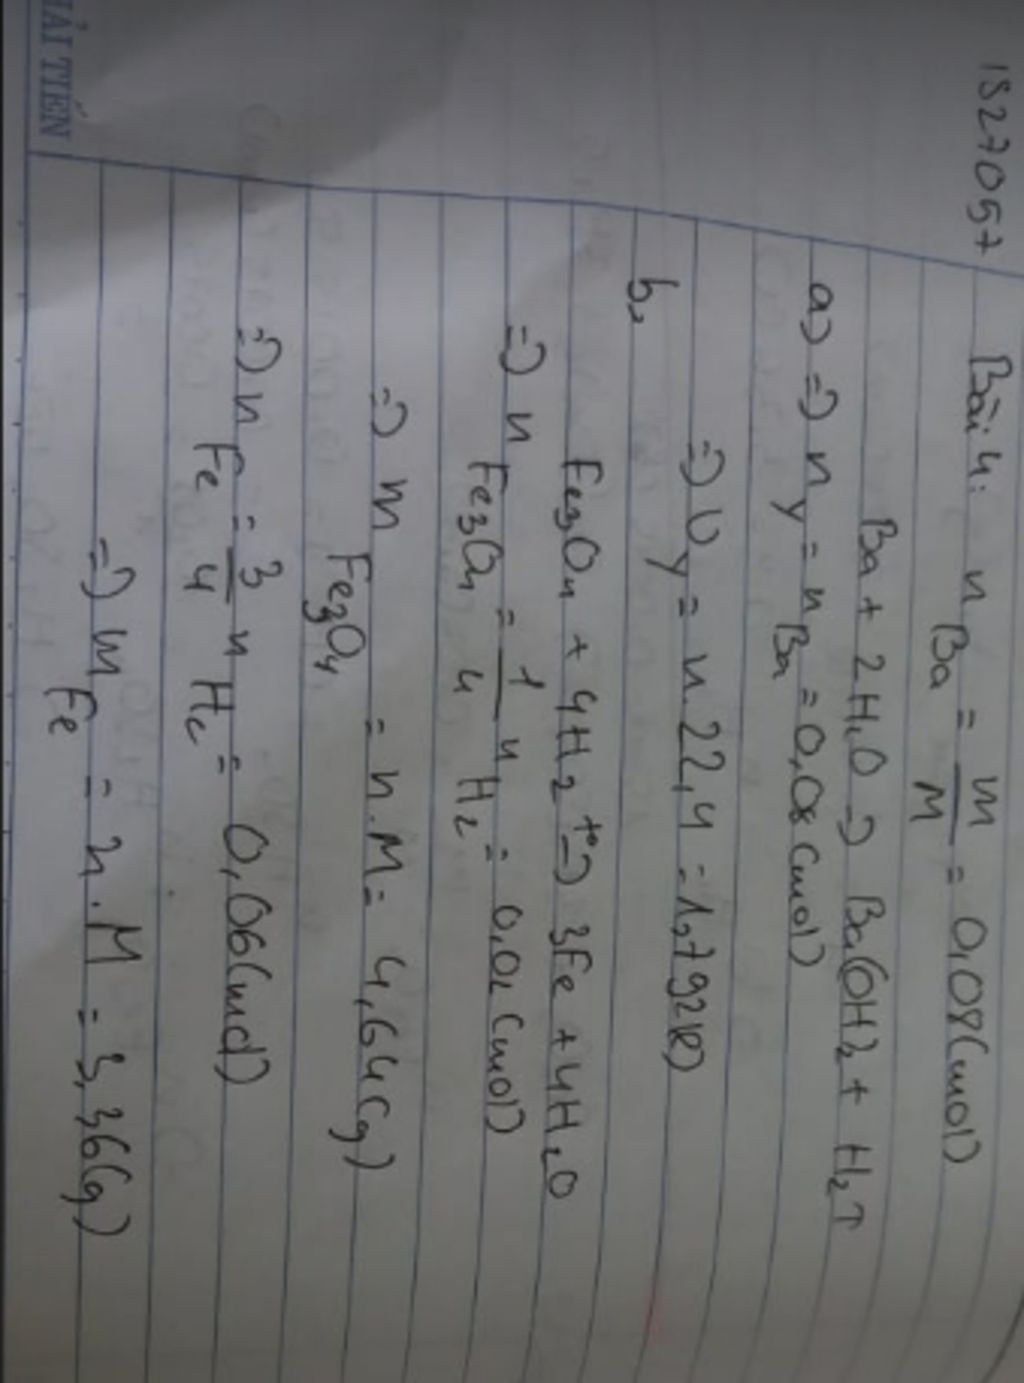 1827057
Bài 4: n Ba = m/M = 0,08 (mol)
Ba + 2H2O => Ba(OH)2 + H2↑
a) => n y = n Ba = 0,08 (mol)
=> V y = n.22,4 = 1,792 (l)
b,
Fe3O4 + 4H2 t° => 3Fe + 4H2O
=> n Fe3O4 = 1/4 n H2 = 0,02 (mol)
=> m Fe3O4 = n.M = 4,64 (g)
=> n Fe = 3/4 n H2 = 0,06 (mol)
=> m Fe = n.M = 3,36 (g)
HẢI TIẾN